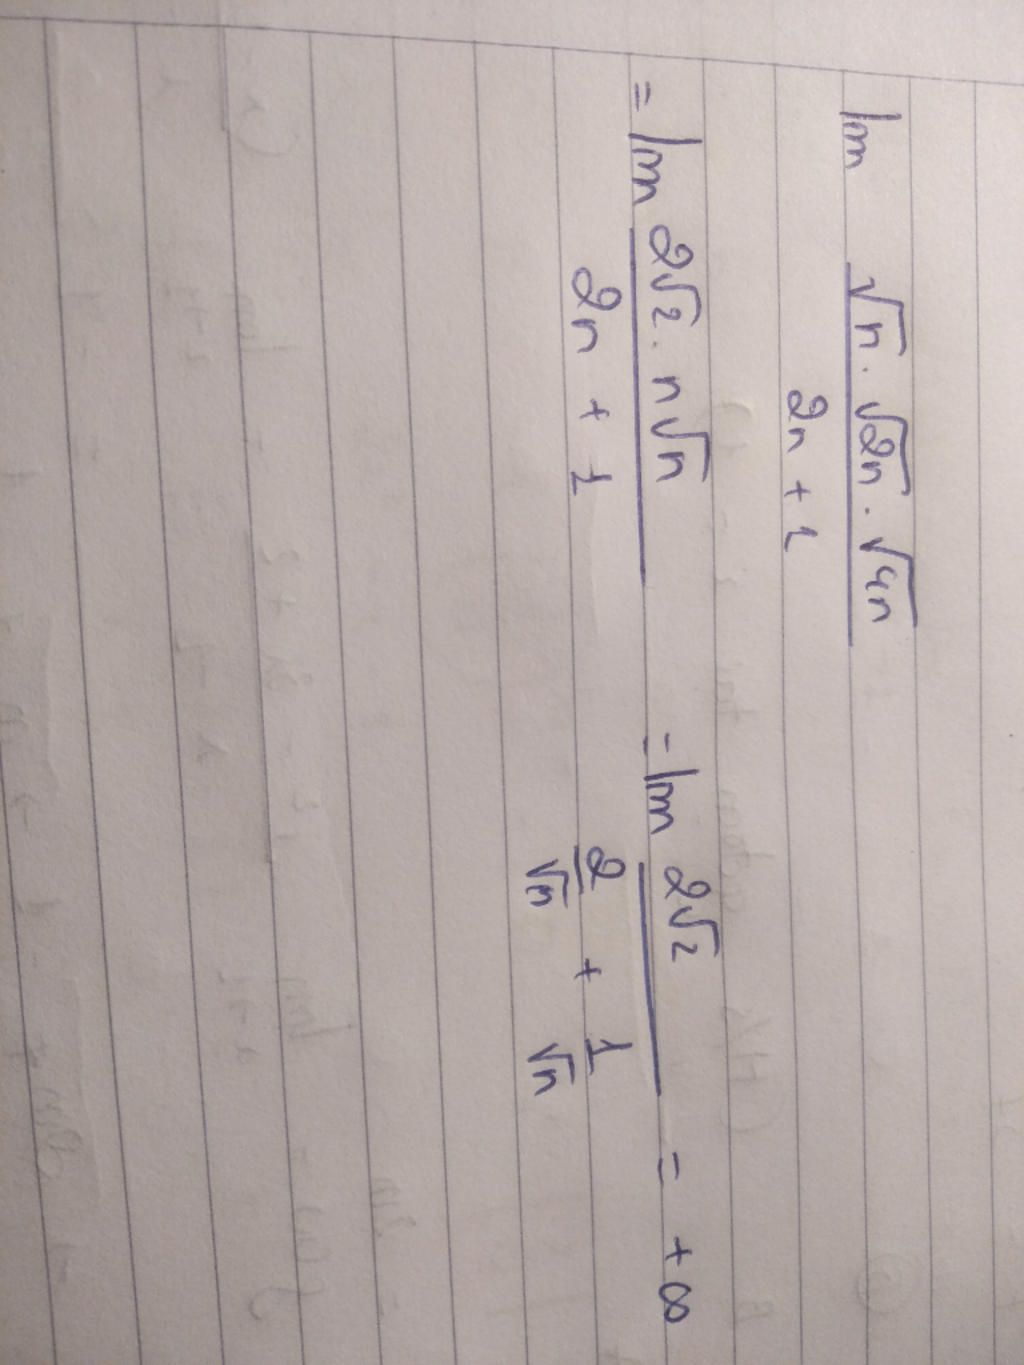 lim √n . √2n . √4n / 2n + 1
= lim 2√2 . n√n / 2n + 1 = lim 2√2 / 2/√n + 1/√n = + ∞